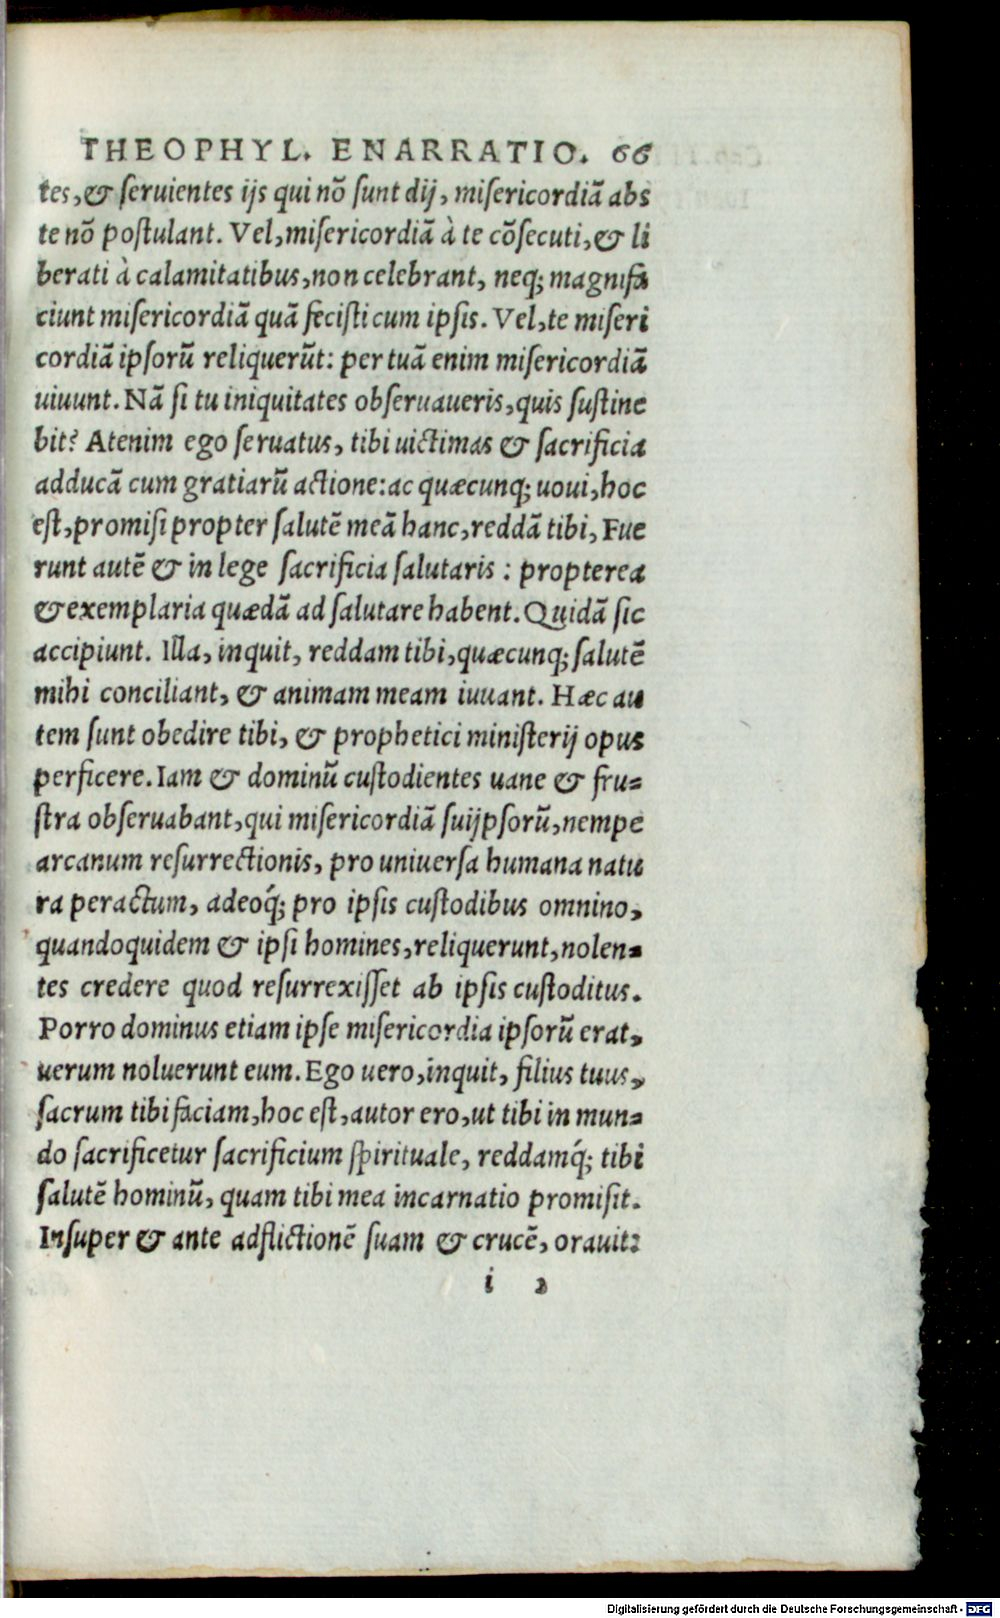 THEOPHYL. ENARRATIO. 66
tes, & seruientes ijs qui nõ sunt dij, misericordiã abs
te nõ postulant. Vel, misericordiã à te cõsecuti, & li
berati à calamitatibus, non celebrant, neq; magnifa
ciunt misericordiã quã fecisti cum ipsis. Vel, te miseri
cordiã ipsorũ reliquerũt: per tuã enim misericordiã
uiuunt. Nã si tu iniquitates obseruaueris, quis sustine
bit? Atenim ego seruatus, tibi uictimas & sacrificia
adducã cum gratiarũ actione: ac quæcunq; uoui, hoc
est, promisi propter salutẽ meã hanc, reddã tibi, Fue
runt autẽ & in lege sacrificia salutaris : propterea
& exemplaria quædã ad salutare habent. Quidã sic
accipiunt. Illa, inquit, reddam tibi, quæcunq; salutẽ
mihi conciliant, & animam meam iuuant. Hæc au
tem sunt obedire tibi, & prophetici ministerij opus
perficere. Iam & dominũ custodientes uane & fru=
stra obseruabant, qui misericordiã suijpsorũ, nempe
arcanum resurrectionis, pro uniuersa humana natu
ra peractum, adeoq́; pro ipsis custodibus omnino,
quandoquidem & ipsi homines, reliquerunt, nolen=
tes credere quod resurrexisset ab ipsis custoditus.
Porro dominus etiam ipse misericordia ipsorũ erat,
uerum noluerunt eum. Ego uero, inquit, filius tuus,
sacrum tibi faciam, hoc est, autor ero, ut tibi in mun=
do sacrificetur sacrificium spirituale, reddamq́; tibi
salutẽ hominũ, quam tibi mea incarnatio promisit.
Insuper & ante adflictionẽ suam & crucẽ, orauit:
i 2
Digitalisierung gefördert durch die Deutsche Forschungsgemeinschaft - DFG